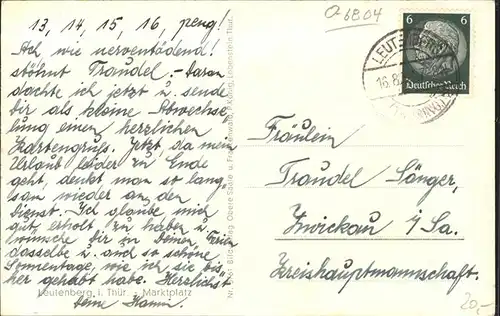 13, 14, 15, 16, peng!
Ach wie nerventötend!
stöhnt Traudel. – Daran
dachte ich jetzt u. sende
dir als kleine Abwechse
lung einen herzlichen
Kartengruß. Jetzt, da mein
Urlaub leider zu Ende
geht, denkt man so lang-
sam wieder an den
Dienst. – Ich glaube mich
gut erholt zu haben u.
wünsche dir zu Deinen Ferien
dasselbe u. auch so schöne
Sonnentage, wie ich sie bis-
her gehabt habe. Herzlichst
Deine Hanni.
Leutenberg i. Thür. Marktplatz
Verlag Obere Saale u. Frankenwald, Lobenstein Thür.
a 6804
6 6
Deutsches Reich
LEUTENBERG
16.8.
(THÜRINGEN)
Fräulein
Traudel Sänger,
Zwickau i/Sa.
Kreishauptmannschaft.
20,-